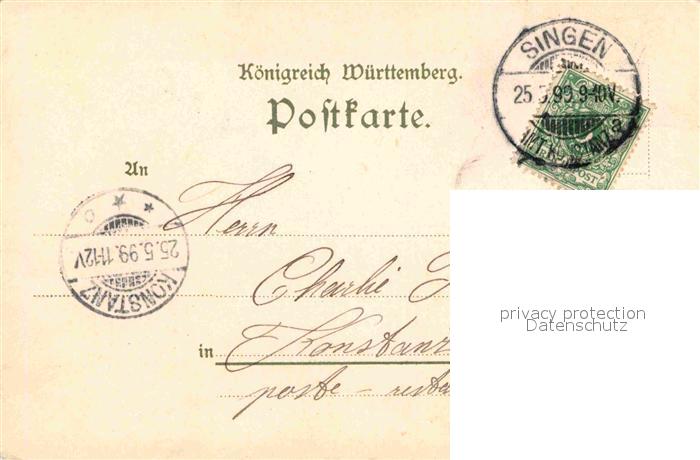 Königreich Württemberg.
Postkarte.
SINGEN
25.5.99.9-10V.
POST
An
Herrn
Charlie
in Konstanz
poste-resta
KONSTANZ
25.5.99.11-12V
privacy protection
Datenschutz